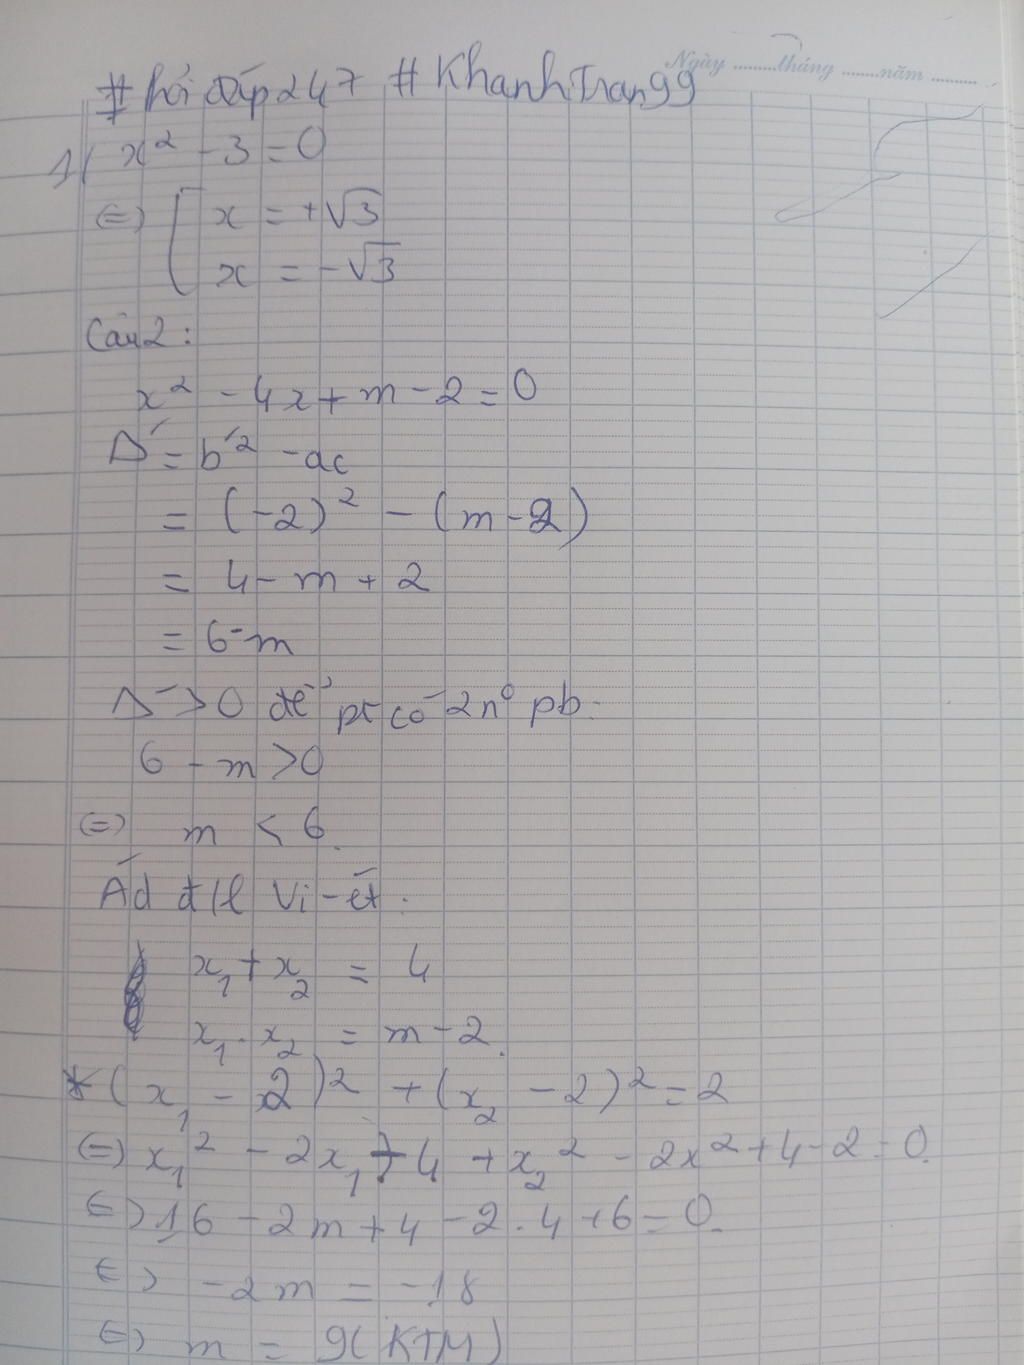 Ngày ........ tháng ....... năm .........
#hỏi đáp247 #KhanhTran99
1/ x² - 3 = 0
⇔ [ x = +√3
x = -√3
Câu 2:
x² - 4x + m - 2 = 0
Δ' = b'² - ac
= (-2)² - (m - 2)
= 4 - m + 2
= 6 - m
Δ' > 0 để pt có 2 n⁰ pb.
6 - m > 0
⇔ m < 6.
Ád đ/l Vi-ét.
x₁ + x₂ = 4
x₁ . x₂ = m - 2.
* (x₁ - 2)² + (x₂ - 2)² = 2
⇔ x₁² - 2x₁ + 4 + x₂² - 2x² + 4 - 2 = 0.
⇔ 16 - 2m + 4 - 2.4 + 6 = 0.
⇔ -2m = -18
⇔ m = 9 (KTM)